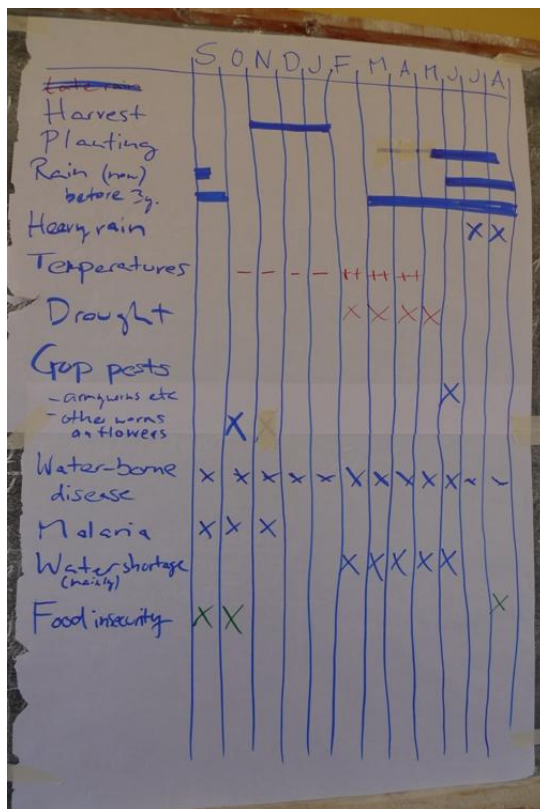 S O N D J F M A M J J A
Late rain
Harvest
Planting
Rain (now)
before 3y.
Heavy rain X X
Temperatures - - - - ++ ++ ++
Drought X X X X
Crop pests
- armywins etc X
- other worms X X
on flowers
Water-borne X X X X X X X X X X ~ ~
disease
Malaria X X X
Water shortage X X X X X
(mainly)
Food insecurity X X X